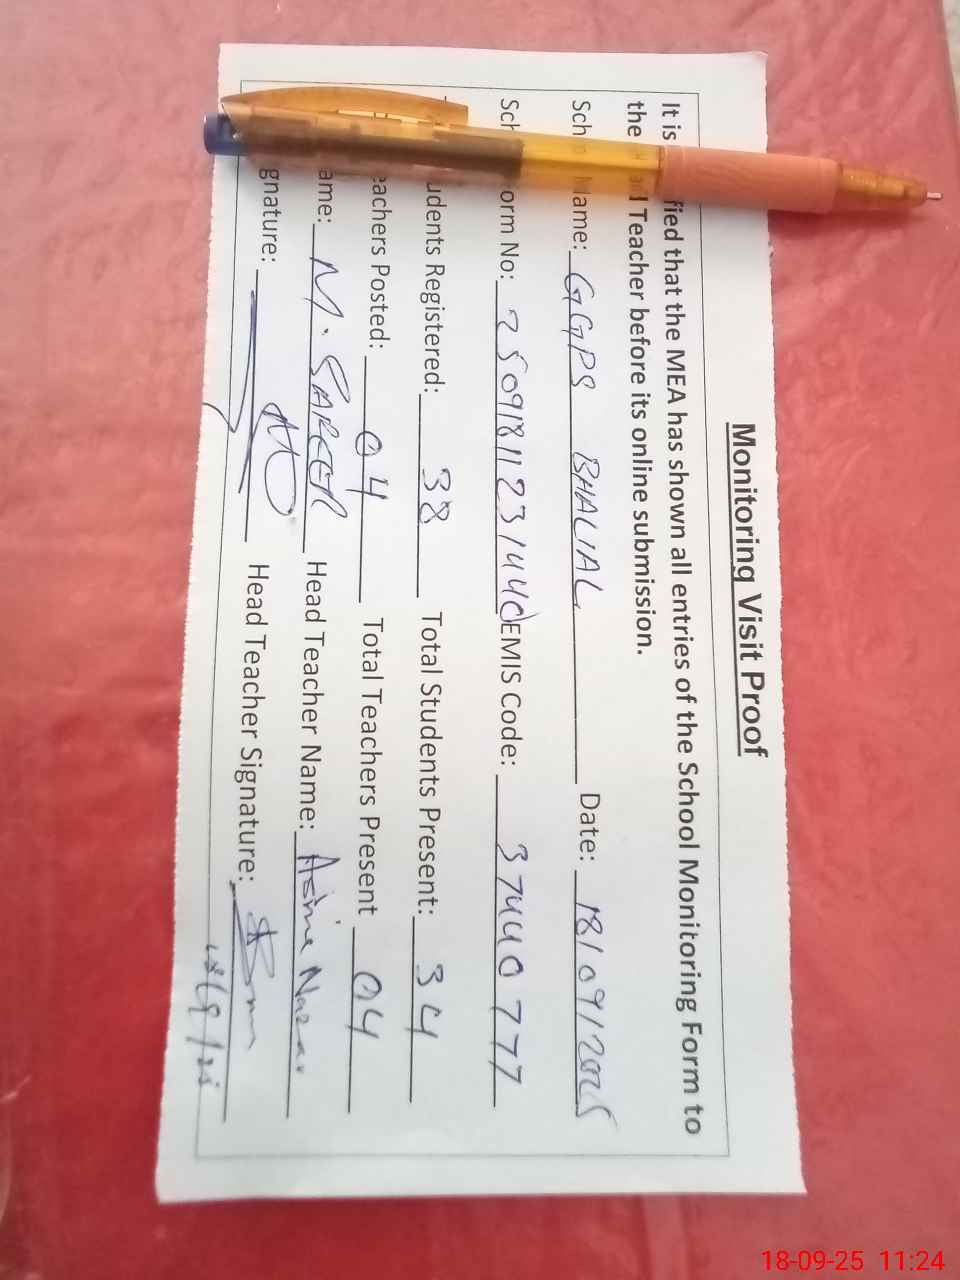 Monitoring Visit Proof
It is fied that the MEA has shown all entries of the School Monitoring Form to
the Teacher before its online submission.
Sch Name: GGPS BHALIAL Date: 18/09/2025
Sch orm No: EMIS Code: 37440777
udents Registered: 38 Total Students Present: 34
eachers Posted: 04 Total Teachers Present 04
ame: M. Head Teacher Name: Asima Nazar
gnature: Head Teacher Signature:
18/9/25
18-09-25 11:24